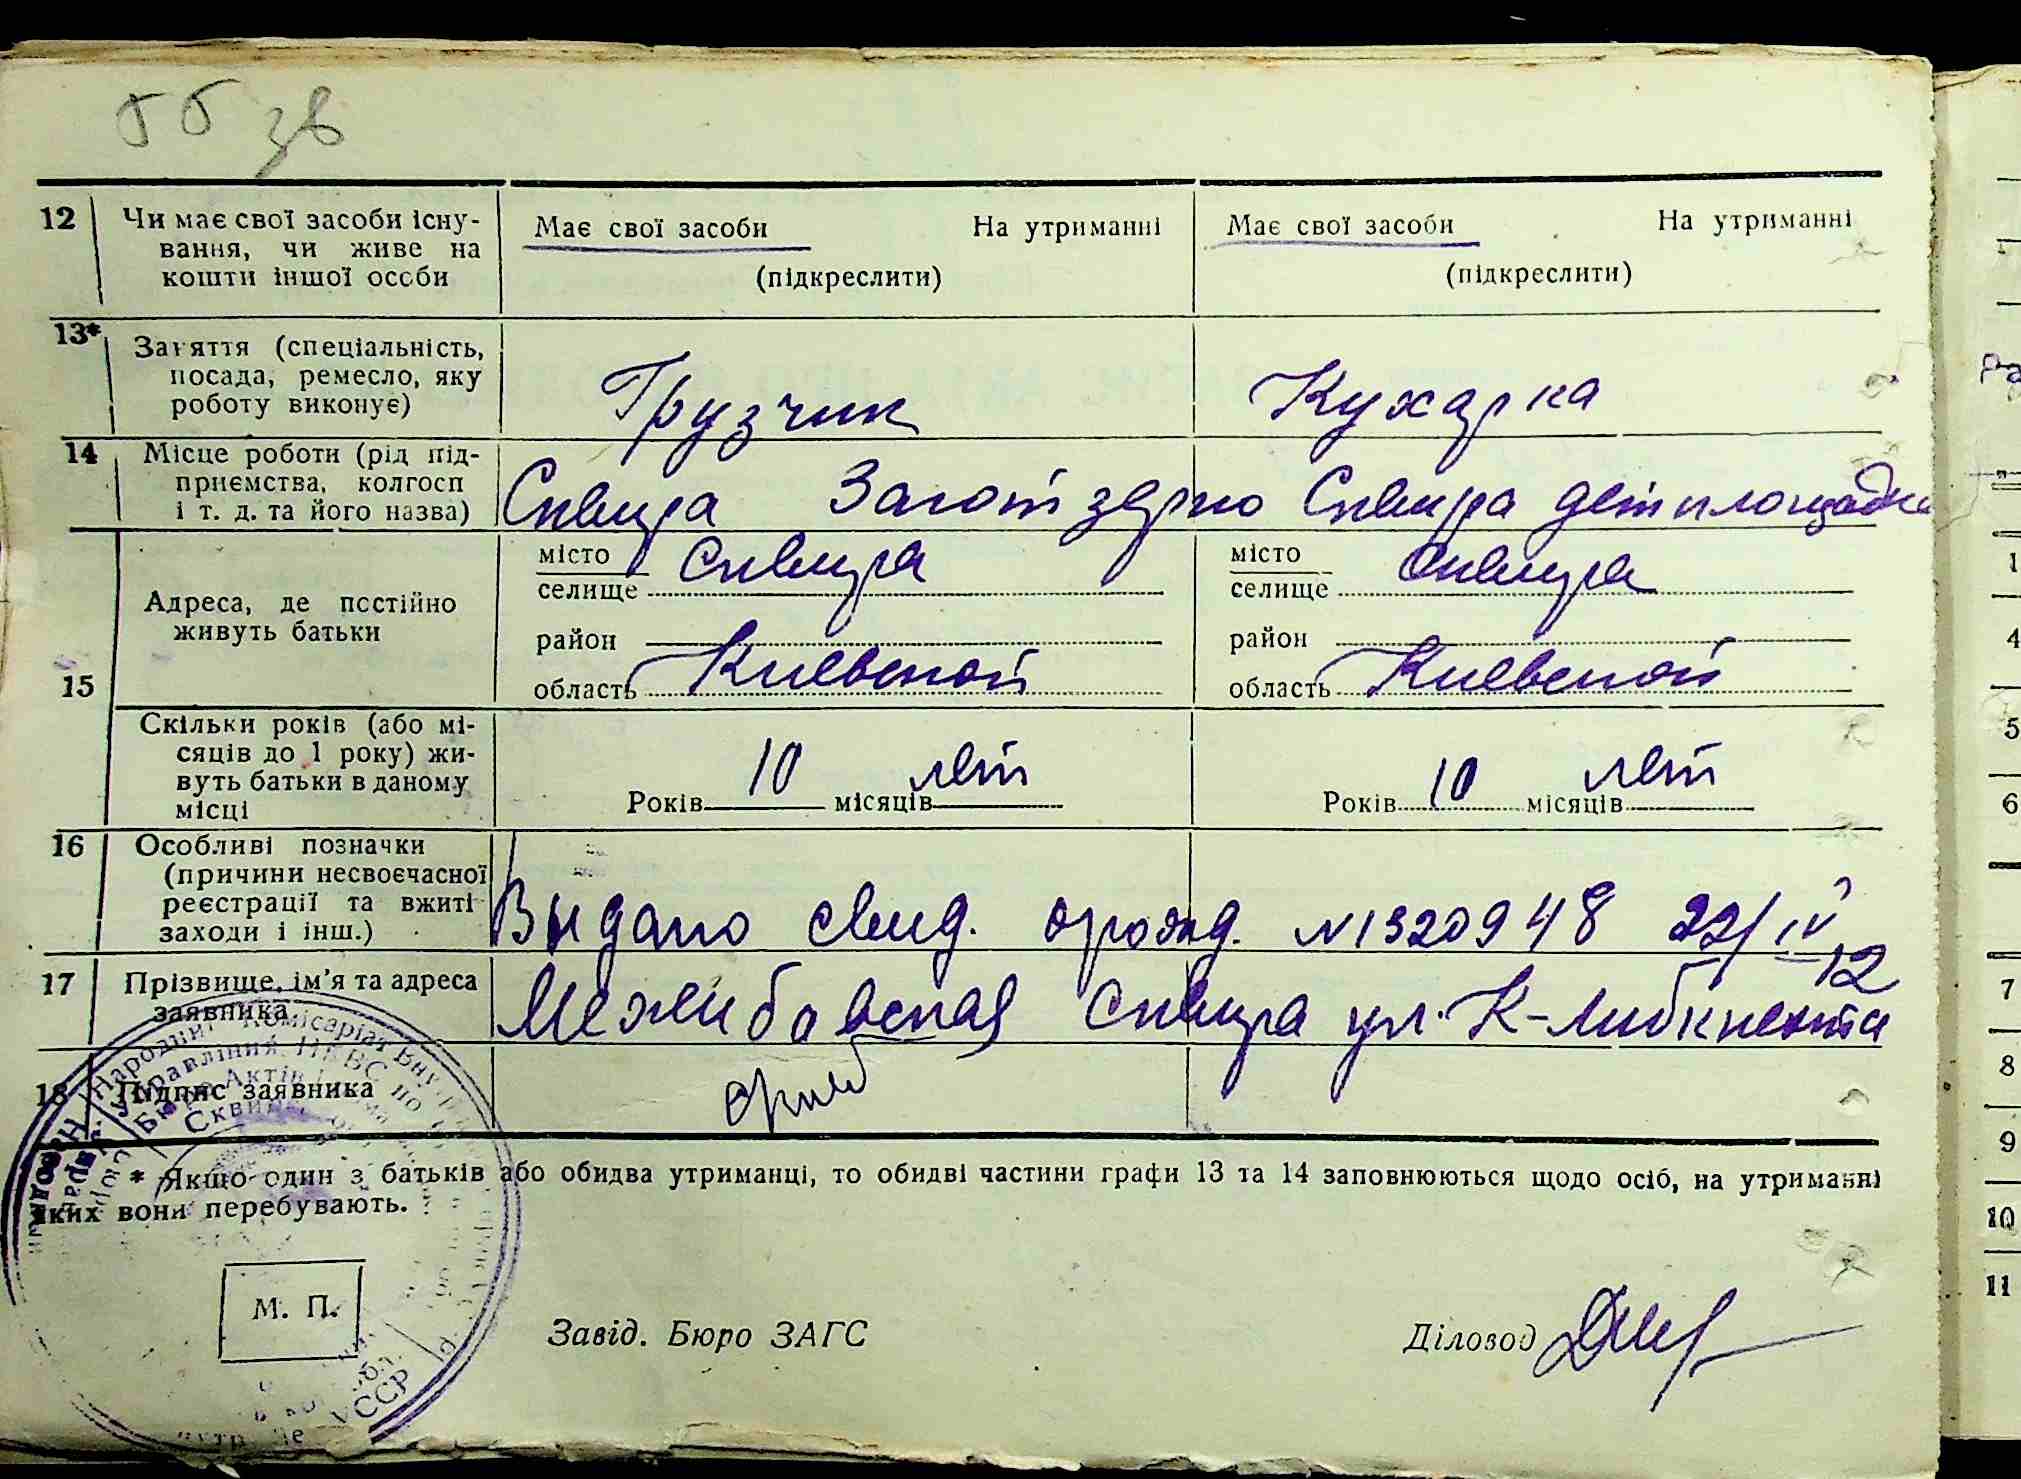 55 зв
12 Чи має свої засоби існу-
вання, чи живе на
кошти іншої особи
Має свої засоби На утриманні
(підкреслити)
Має свої засоби На утриманні
(підкреслити)
13* Заняття (спеціальність,
посада, ремесло, яку
роботу виконує)
Грузчик
Кухарка
14 Місце роботи (рід під-
приємства, колгосп
і т. д. та його назва)
Сквира Заготзерно
Сквира детплощадка
15 Адреса, де постійно
живуть батьки
місто Сквира
селище
район
область Киевской
місто Сквира
селище
район
область Киевской
Скільки років (або мі-
сяців до 1 року) жи-
вуть батьки в даному
місці
Років 10 місяців лет
Років 10 місяців лет
16 Особливі позначки
(причини несвоєчасної
реєстрації та вжиті
заходи і інш.)
Выдано свид. № 1320948 22/IV
17 Прізвище, ім'я та адреса
заявника
Межибовская Сквира ул. К-Либкнехта 12
18 Підпис заявника
* Якщо один з батьків або обидва утриманці, то обидві частини графи 13 та 14 заповнюються щодо осіб, на утриманні
яких вони перебувають.
М. П.
Завід. Бюро ЗАГС
Діловод
Народний Комісаріат Внутр
Управління НКВС по
Бюро Актів
Сквир
УССР
1
4
5
6
7
8
9
10
11